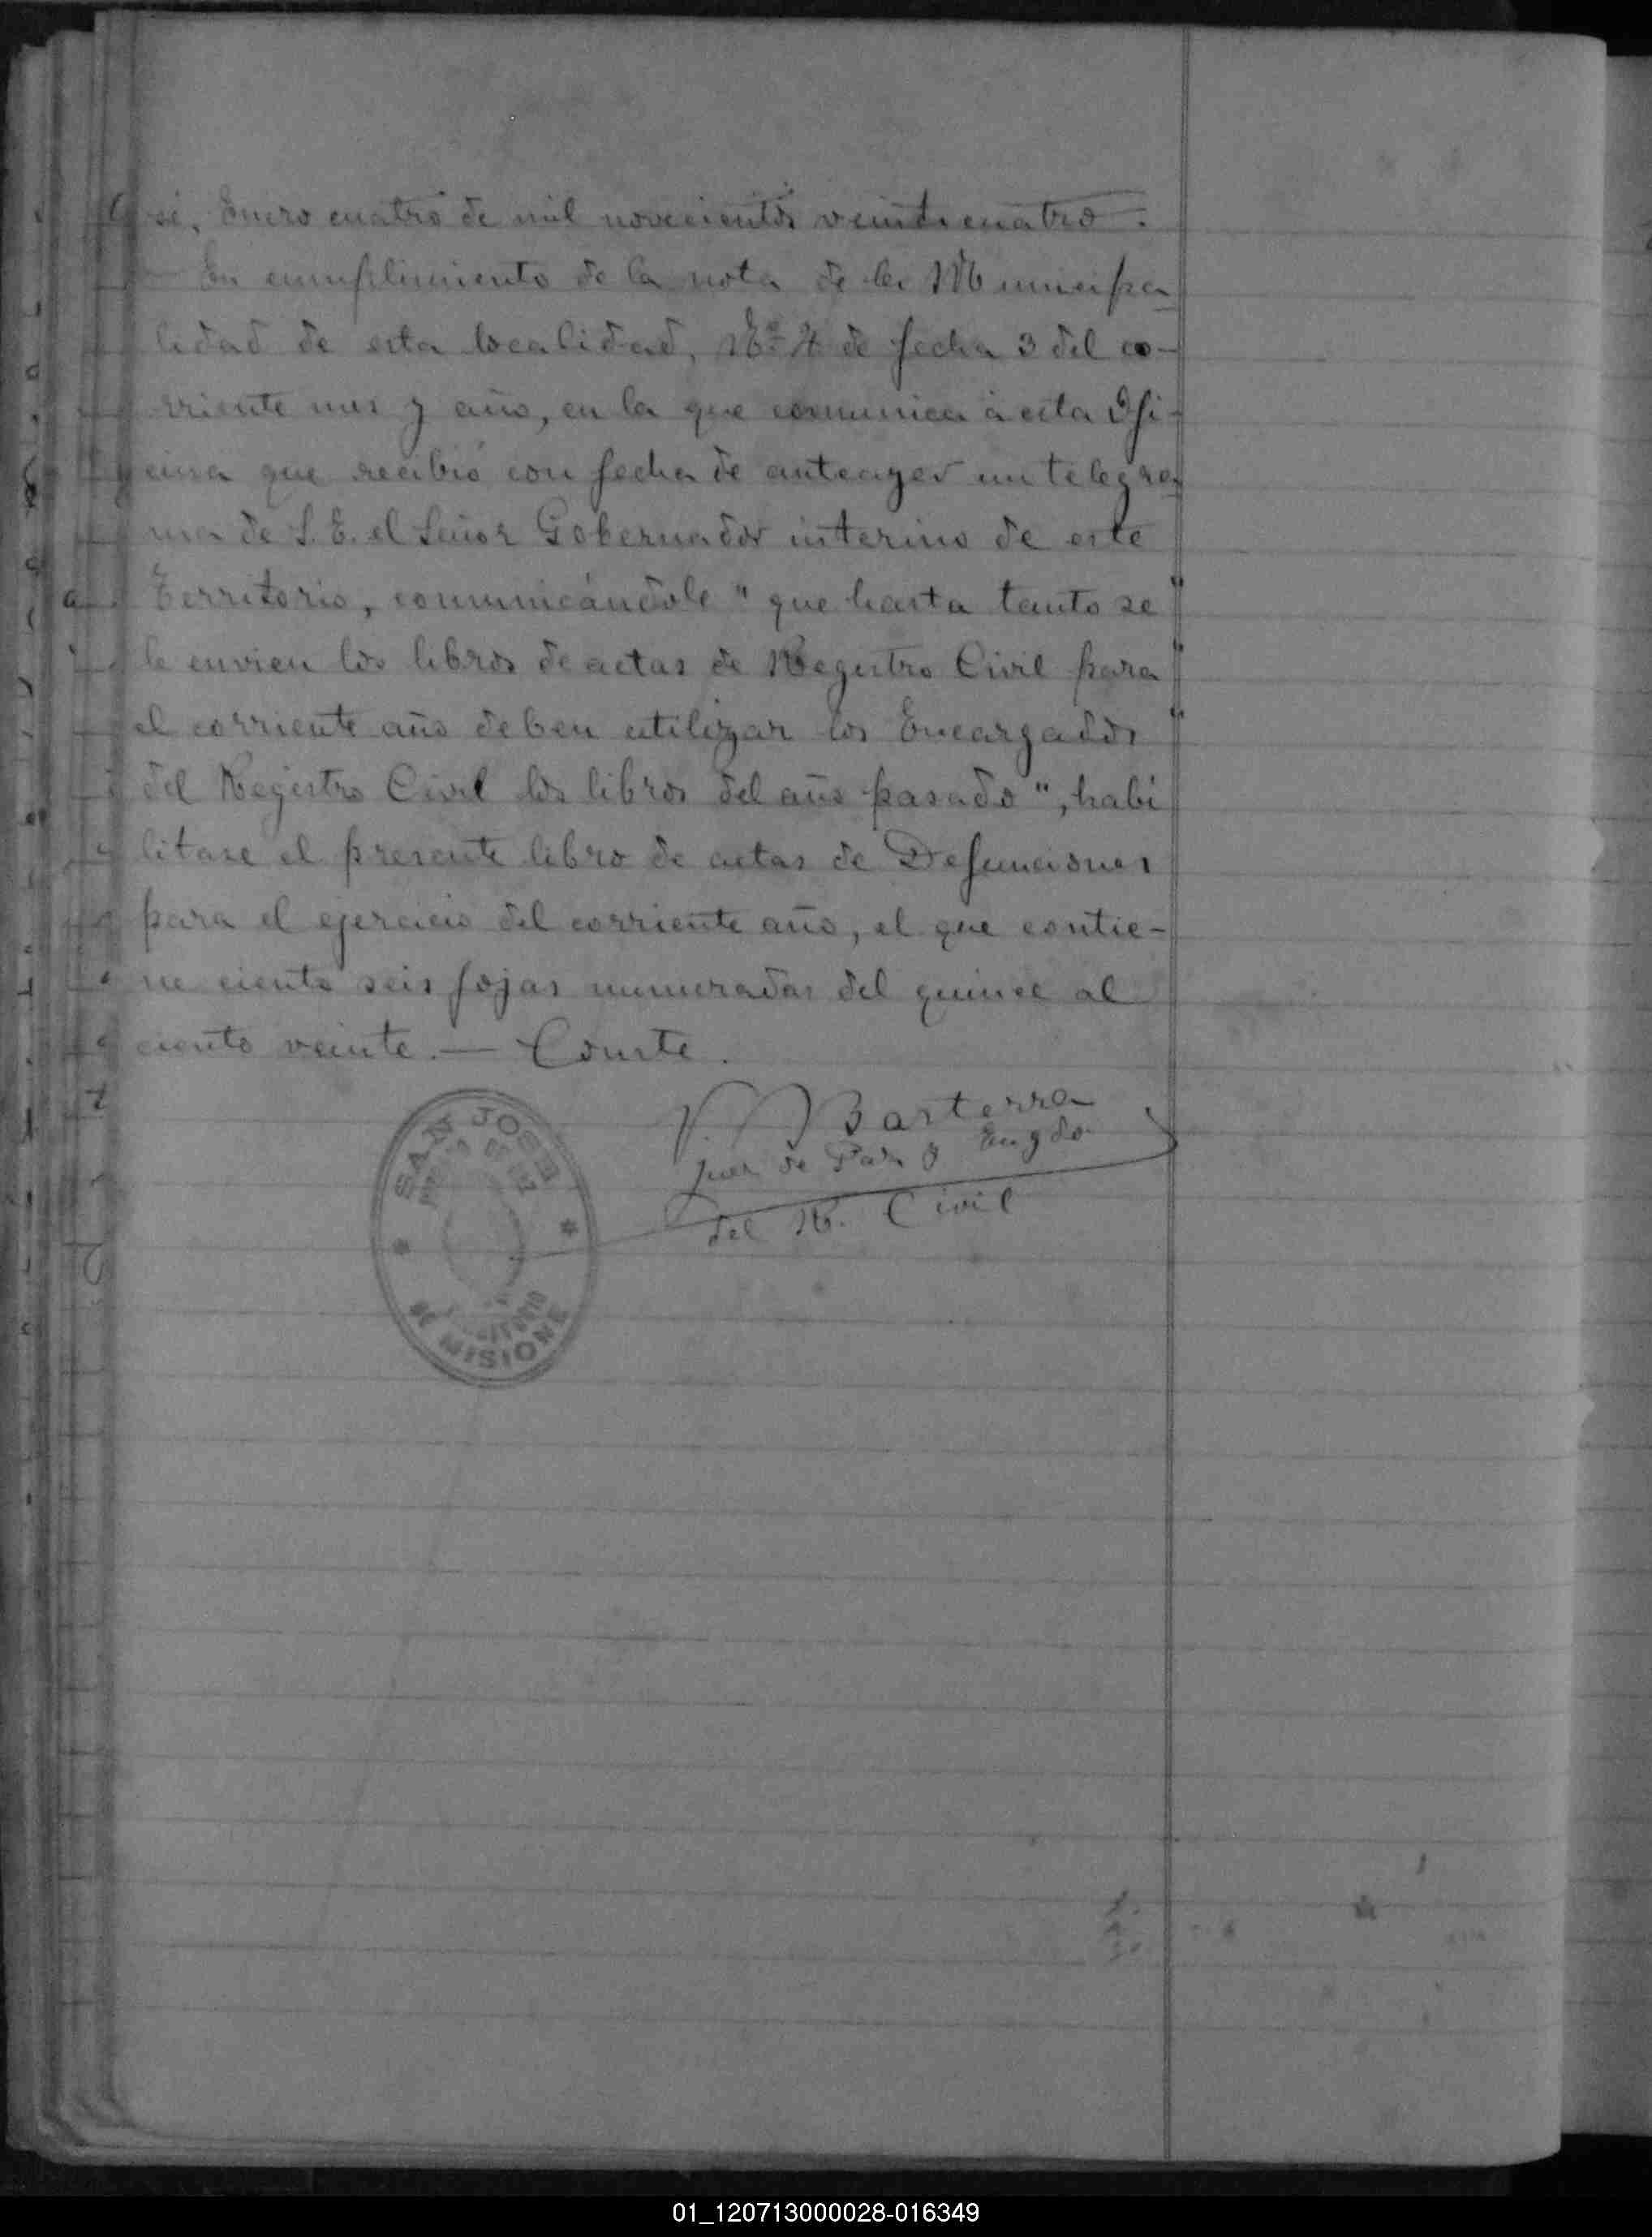 sé, Enero cuatro de mil novecientos veinticuatro.
En cumplimiento de la nota de la Municipa
lidad de esta localidad, Nº 4 de fecha 3 del co-
rriente mes y año, en la que comunica á esta Ofi-
cina que recibió con fecha de anteayer un telegra
ma de S. E. el Señor Gobernador interino de este
Territorio, comunicándole " que hasta tanto se "
le envien los libros de actas de Registro Civil para "
el corriente año deben utilizar los Encargados "
del Registro Civil los libros del año pasado ", habi
litase el presente libro de actas de Defunciones
para el ejercicio del corriente año, el que contie-
ne ciento seis fojas numeradas del quince al
ciento veinte. — Conste.
Basterra
Juez de Paz y Engdo
del R. Civil
SAN JOSE
DE MISIONE
01_120713000028-016349